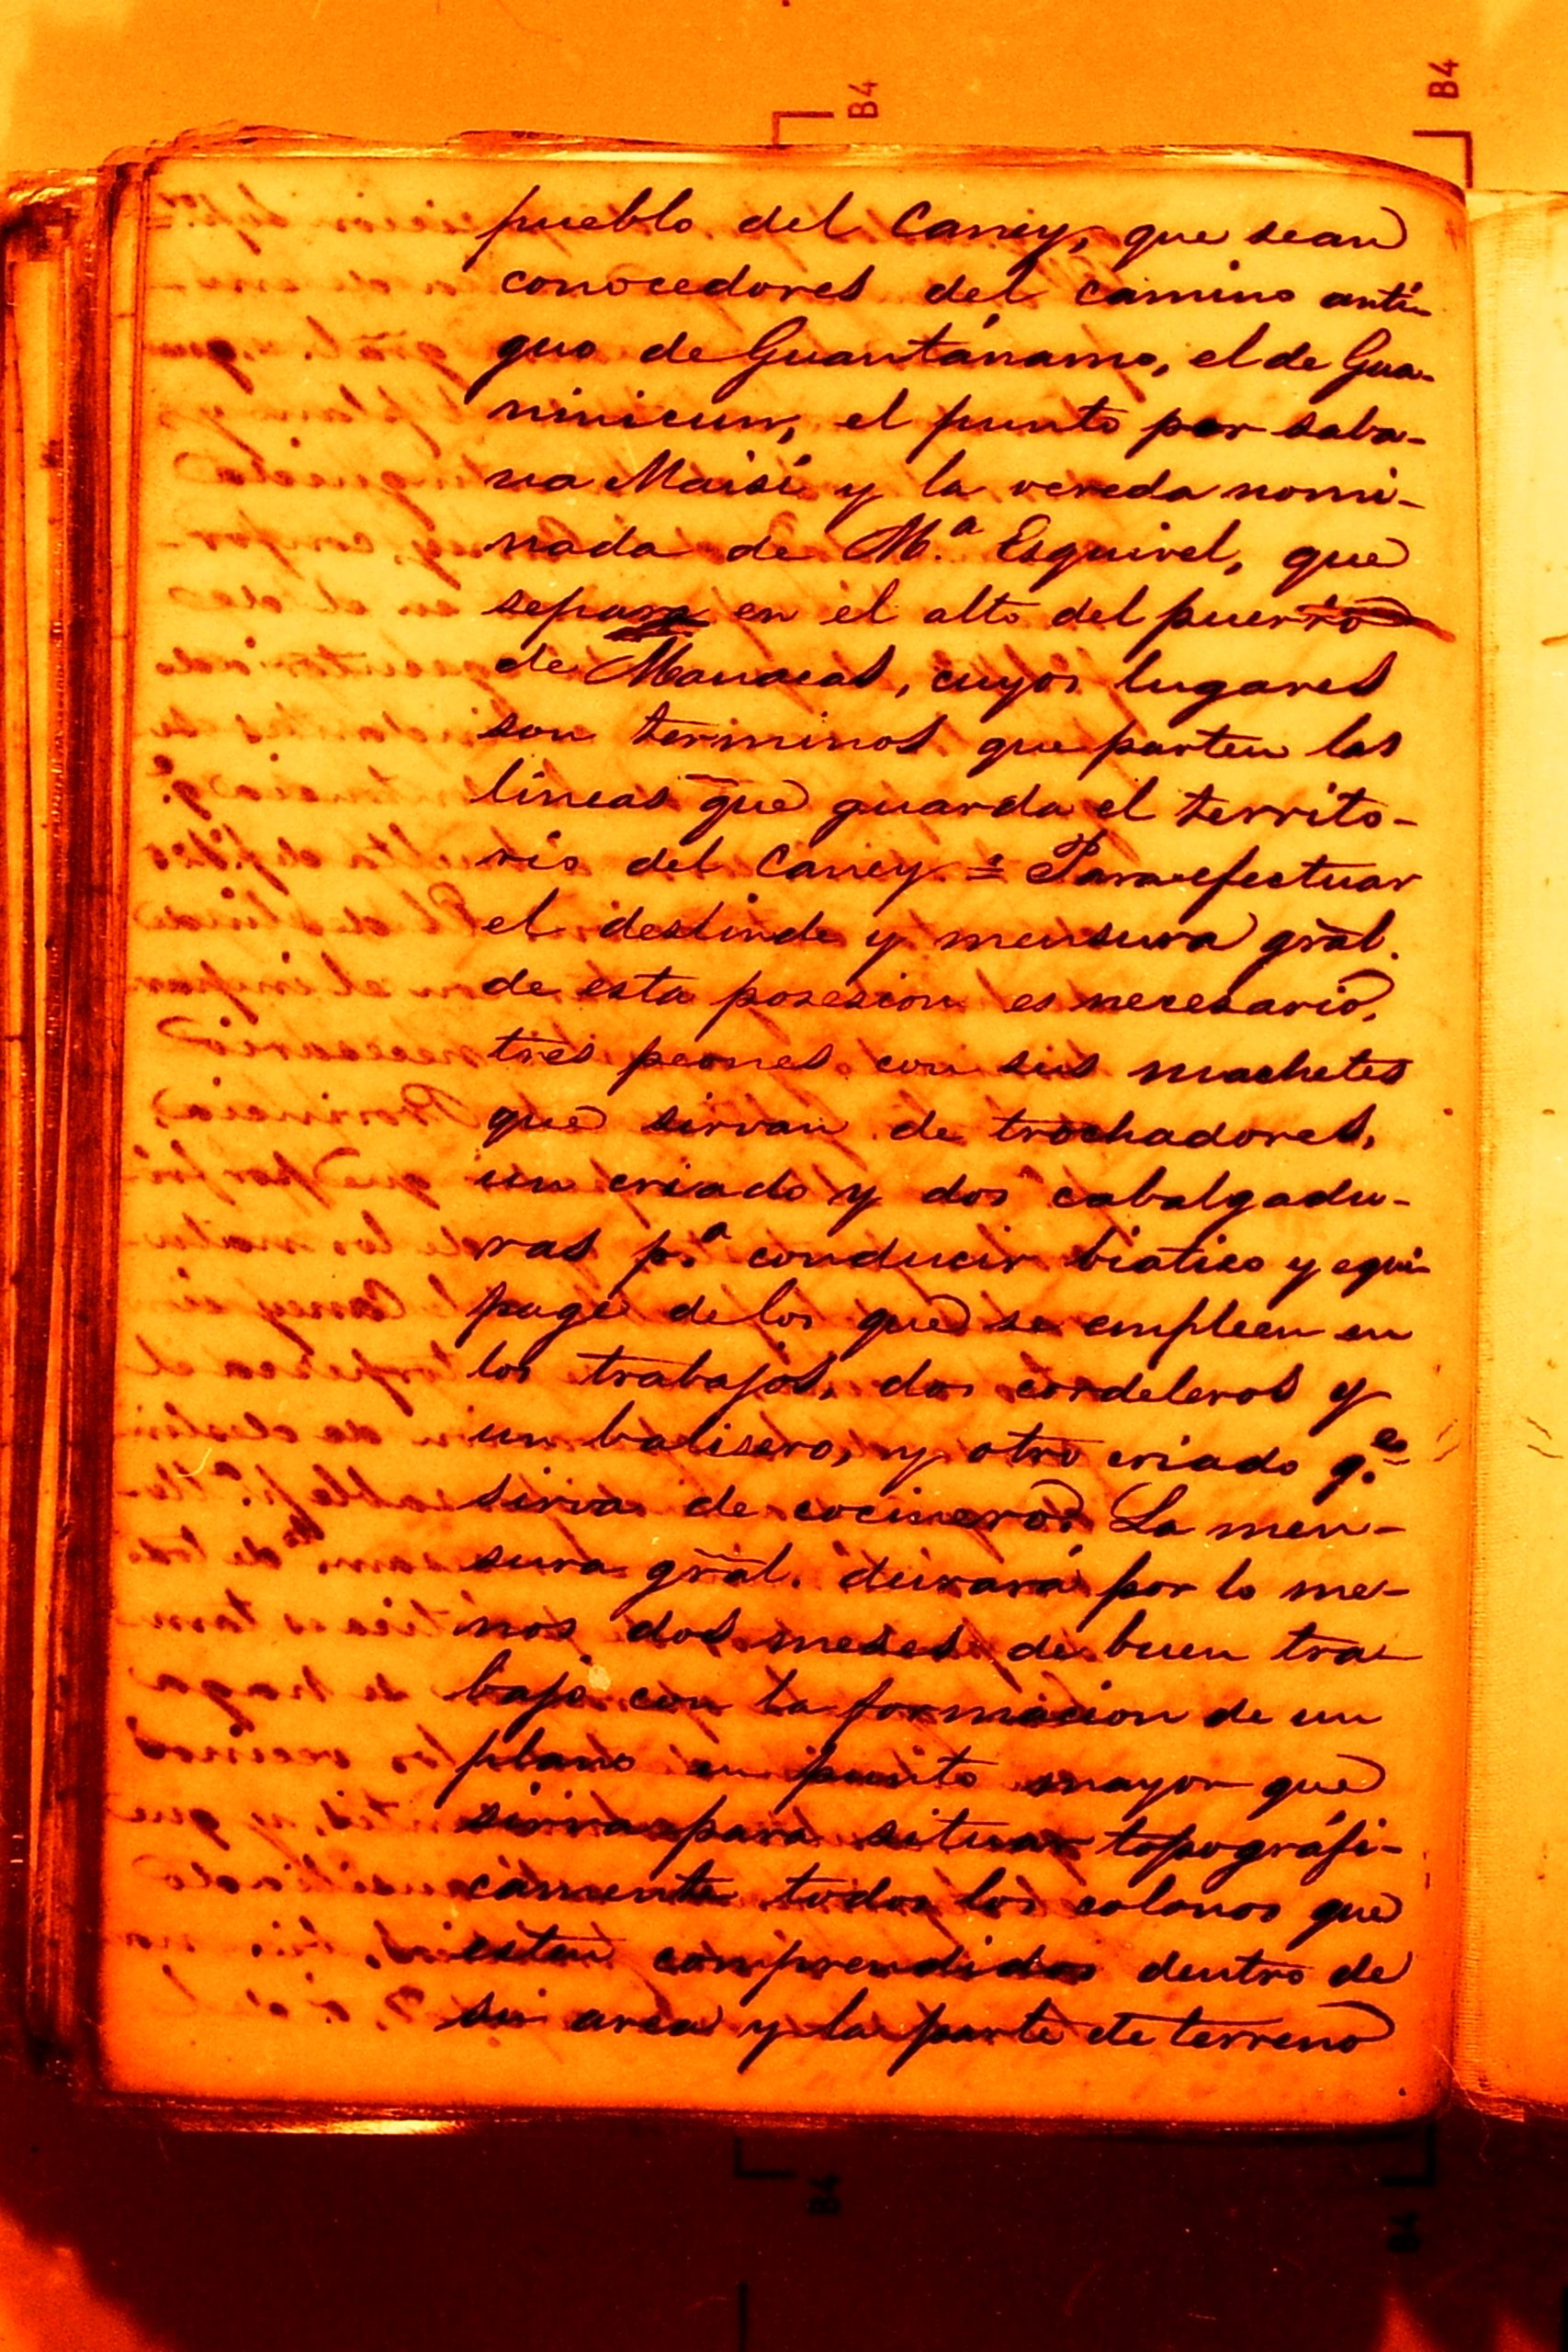 B4
B4
pueblo del Caney, que sean
conocedores del camino antí-
guo de Guantánamo, el de Gua-
ninicun, el punto por saba-
na Maisí y la vereda nomi-
nada de M.ª Esquivel, que
separa en el alto del puerto
de Manacas, cuyos lugares
son terminos que parten las
líneas que guarda el territo-
rio del Caney = Para efectuar
el deslinde y mensura gral.
de esta posesion es necesario,
tres peones con sus machetes
que sirvan de trochadores,
un criado y dos cabalgadu-
ras p.ª conducir biatico y equi-
page de los que se empleen en
los trabajos, dos cordeleros y
un balisero, y otro criado q.e
sirva de cocinero. La men-
sura gral. durará por lo me-
nos dos meses de buen tra-
bajo con la formacion de un
plano en punto mayor que
sirva para situar topográfi-
camente todos los colonos que
estan comprendidos dentro de
su area y la parte de terreno
B4
B4